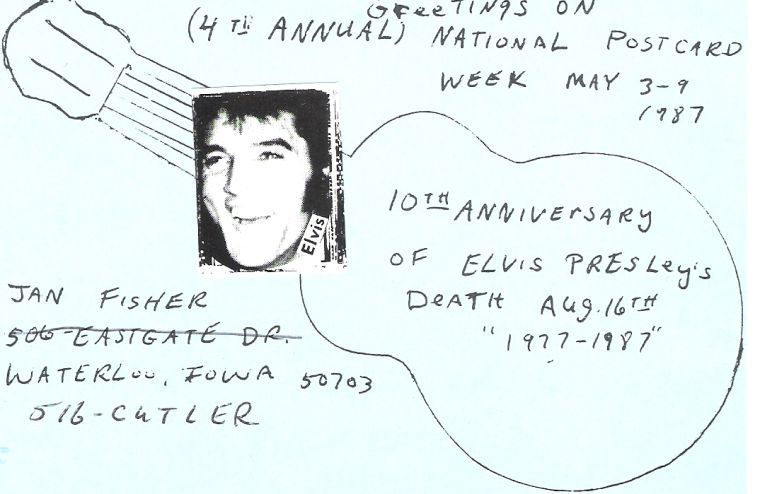 GReeTINGS ON
(4TH ANNUAL) NATIONAL POSTCARD
WEEK MAY 3-9
1987
Elvis
10TH ANNIVERSARY
OF ELVIS PRESLey's
DeATH AUg. 16TH
"1977-1987"
JAN FISHER
506-EASTGATE DR.
WATERLOO, IOWA 50703
516-CUTLER